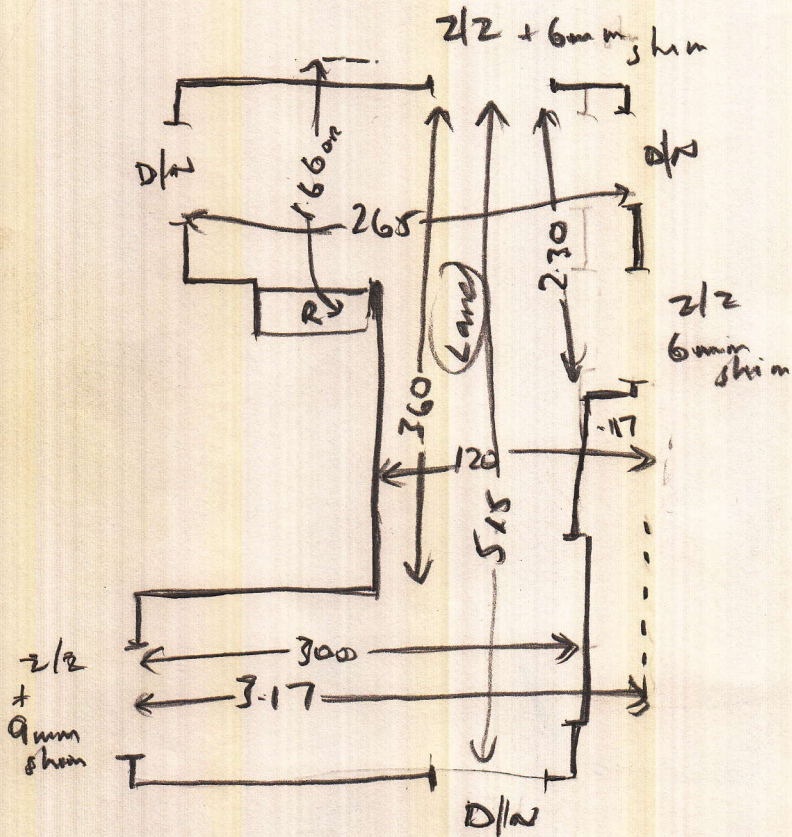 z/z + 6mm shim
D/N
1.66on
D/N
265
2.30
R
Land
z/z
6mm
shim
360
.17
120
515
z/z
+
9mm
shim
300
3.17
D/N